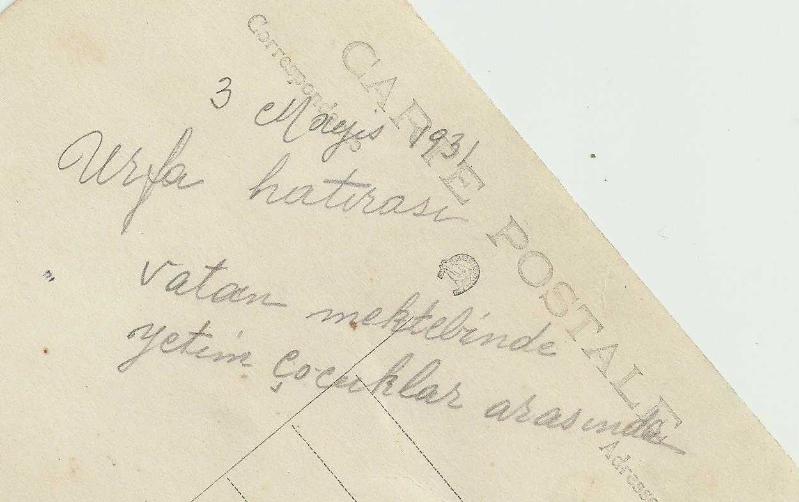 CARTE POSTALE
Correspondance
Adresse
3 Mayis 1931
Urfa hatırası
vatan mektebinde
yetim çocuklar arasında